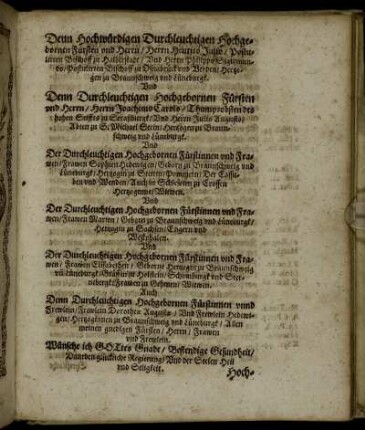 Denn Hochwürdigen Durchleuchtigen Hochge-
bornen Fürsten und Herrn / Herrn Henrico Julio / Postu-
lirten Bischoff zu Halberstadt / Und Herrn Philippo Sigismun-
do / Postulirten Bischoff zu Oßnabrück und Verden / Hertzo-
gen zu Braunschweig und Lüneburgk.
Und
Denn Durchleuchtigen Hochgebornen Fürsten
und Herrn / Herrn Joachimo Carolo / Thumprobsten des
hohen Stiffts zu Strasburgk / Und Herrn Julio Augusto /
Abten zu S. Michael Stein / Hertzogen zu Braun-
schweig und Lüneburgk.
Und
Der Durchleuchtigen Hochgebornen Fürstinnen und Fra-
wen / Frawen Sophien Hedewigen / Geborn zu Braunschweig und
Lüneburgk / Hertzogin zu Stettin / Pommern / Der Cassu-
ben und Wenden / Auch in Schlesien zu Crossen
Hertzoginne / Witwen.
Und
Der Durchleuchtigen Hochgebornen Fürstinnen und Fra-
wen / Frawen Marien / Geborn zu Braunschweig und Lüneburgk /
Hertzogin zu Sachsen / Engern und
Westphalen.
Und
Der Durchleuchtigen Hochgebornen Fürstinnen und Fra-
wen / Frawen Elisabethen / Geborne Hertzogin zu Braunschweig
und Lüneburgk / Gräffin zu Holstein / Schomburgk und Ster-
nebergk / Frawen zu Gehmen / Witwen.
Auch
Denn Durchleuchtigen Hochgebornen Fürstinnen unnd
Frewlein / Frewlein Dorotheæ Augustæ / Und Frewlein Hedewi-
gen / Hertzoginnen zu Braunschweig und Lüneburgk / Allen
meinen gnedigen Fürsten / Herrn / Frawen
und Frewlein.
Wünsche ich GOttes Gnade / Bestendige Gesundheit /
glückliche Regierung / Und der Seelen Heil
und Seligkeit.
Hoch-